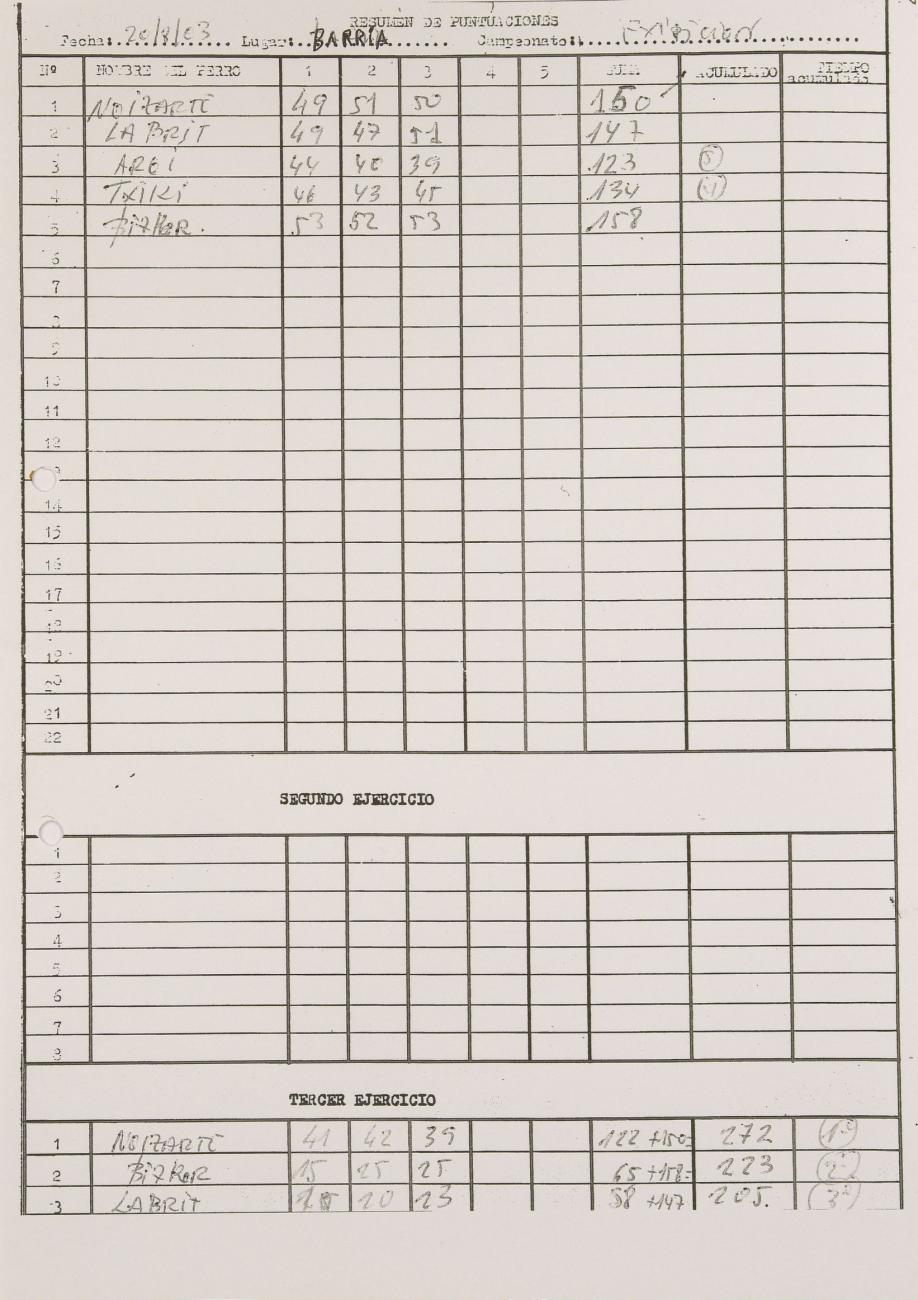 RESUMEN DE PUNTUACIONES
Fecha: 20/8/03 Lugar: BARRIA Campeonato:
Nº NOMBRE DEL PERRO 1 2 3 4 5 SUMA ACUMULADO TIEMPO acumulado
1 NOIZARTE 49 51 50 150
2 LABRIT 49 47 51 147
3 AREI 44 40 39 123 5
4 TXIKI 46 43 45 134 4
5 BIZKOR. 53 52 53 158
6
7
8
9
10
11
12
14
15
16
17
18
19
20
21
22
SEGUNDO EJERCICIO
1
2
3
4
5
6
7
8
TERCER EJERCICIO
1 NOIZARTE 41 42 39 122 +150= 272 1º
2 BIZKOR 15 25 25 65 +158= 223 2º
3 LABRIT 15 20 23 58 +147 205. 3º